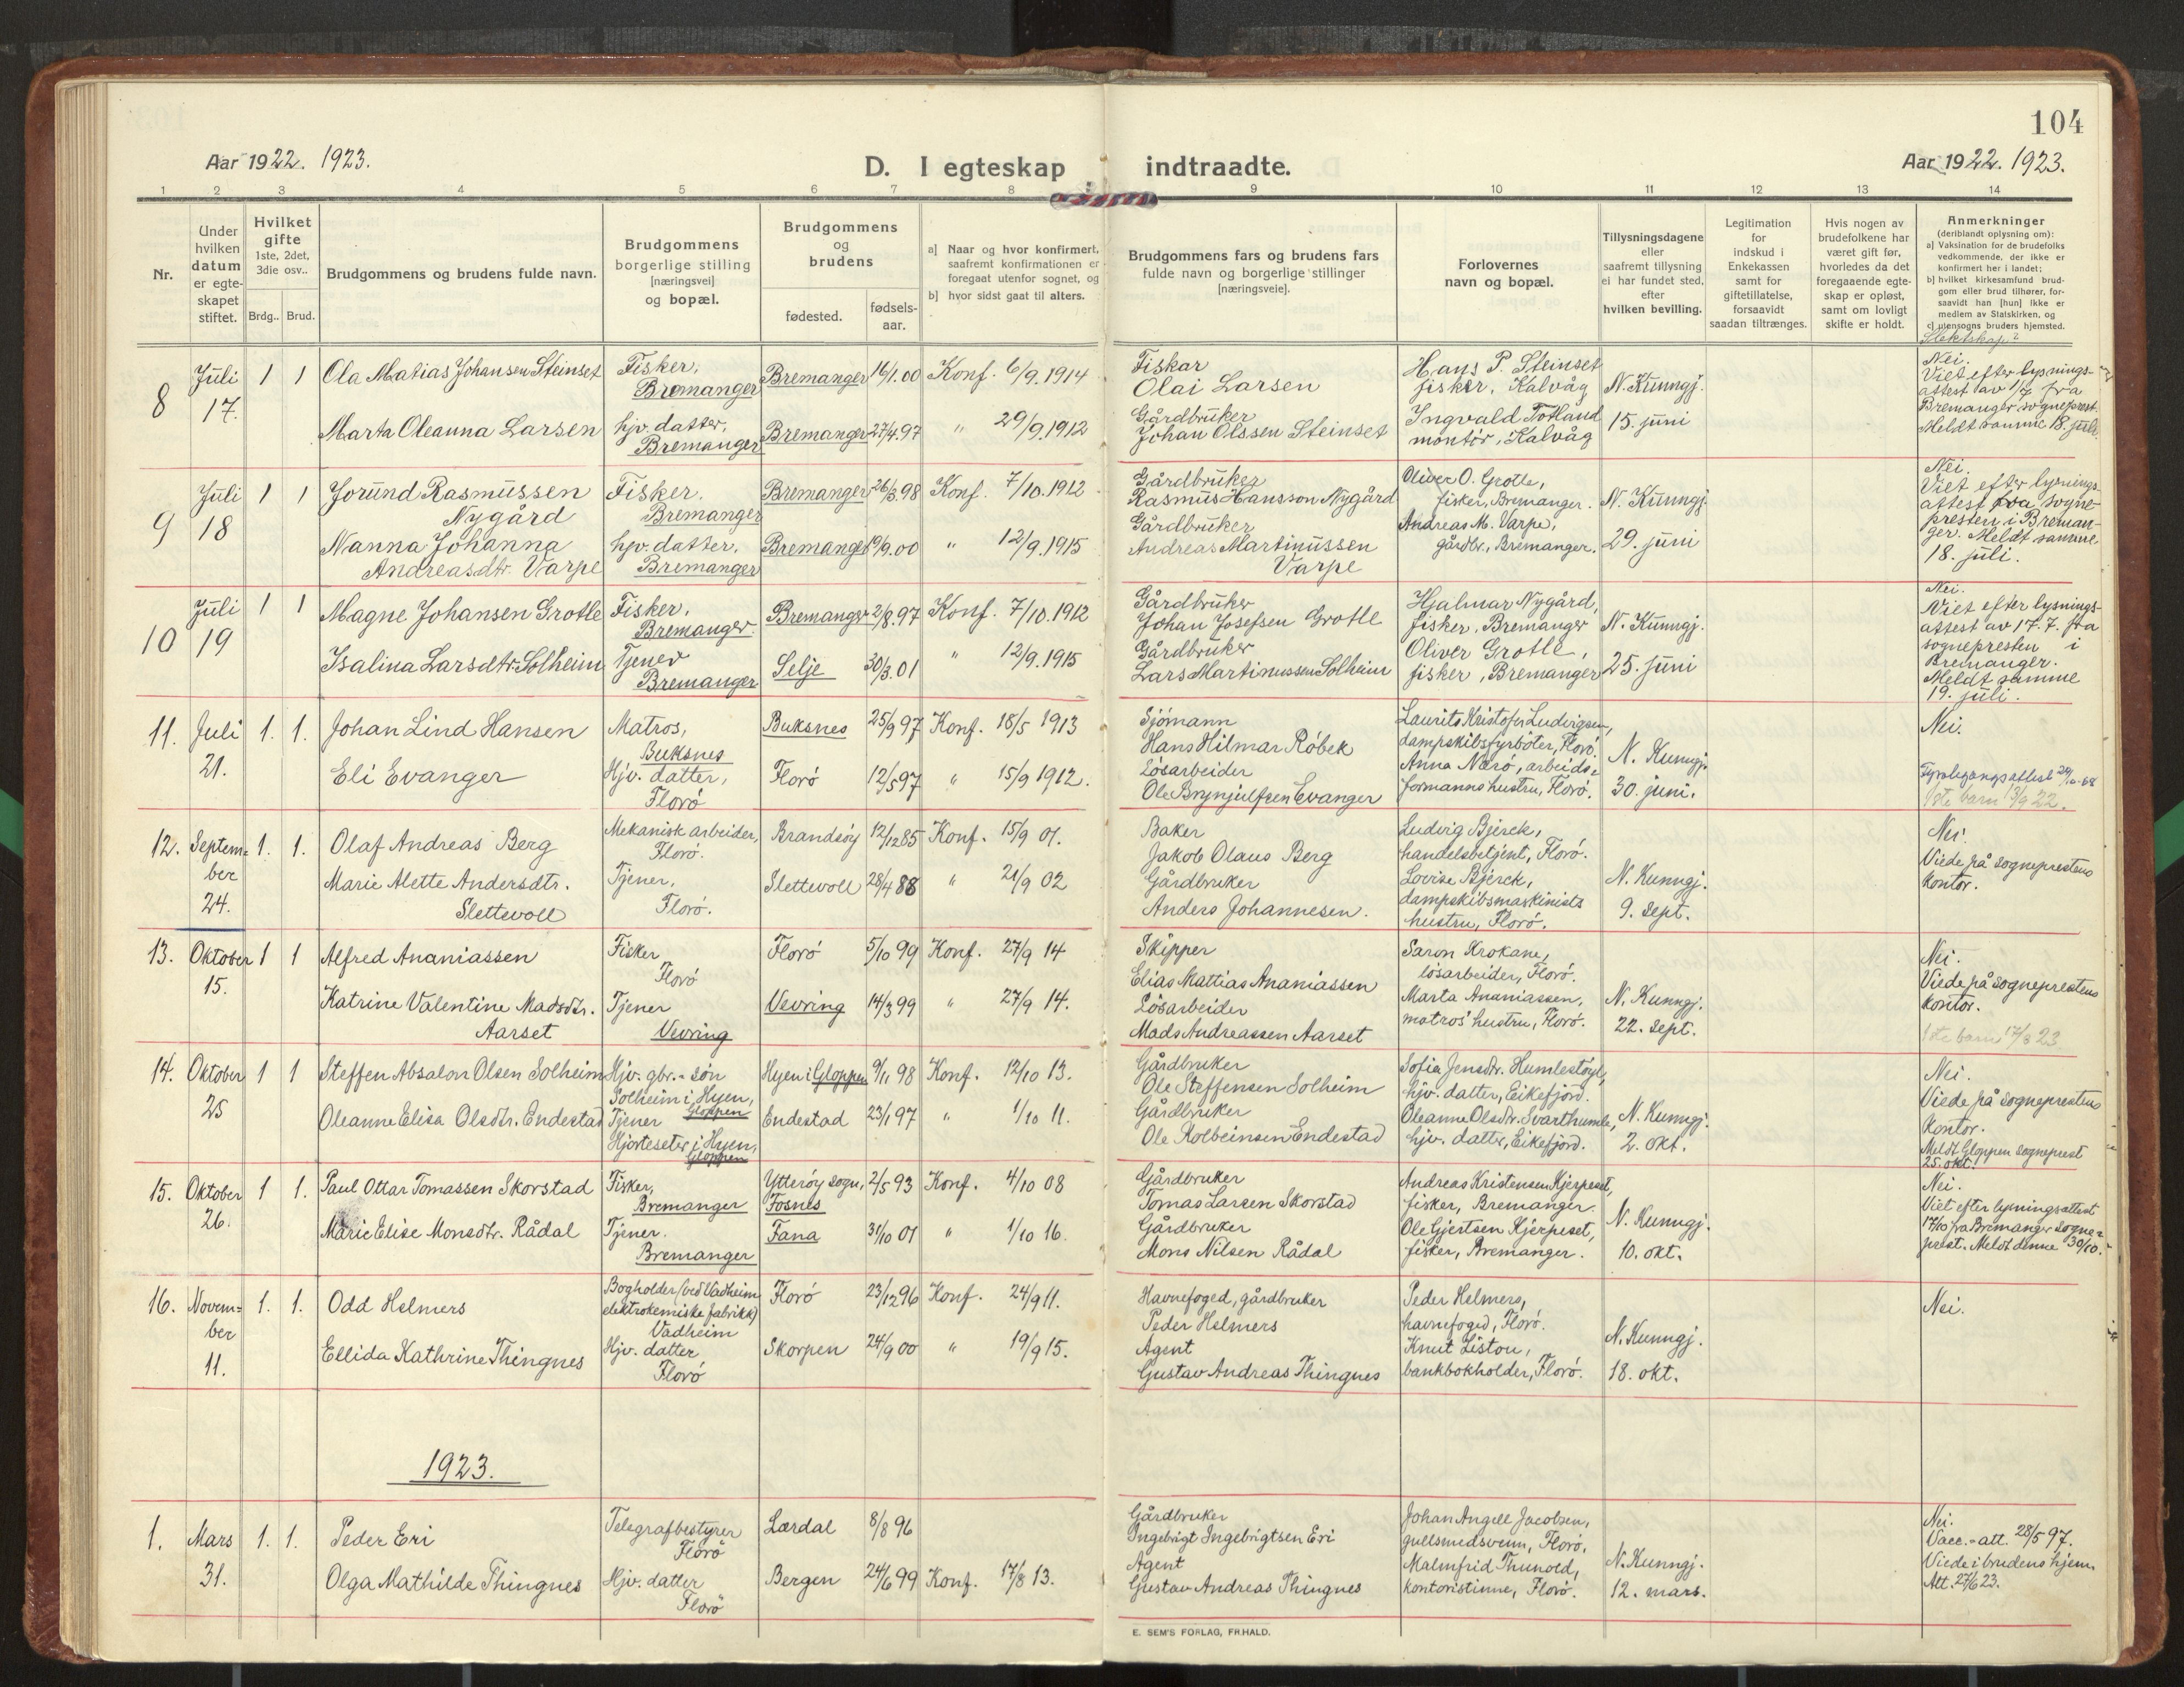 104
Aar 1922. 1923.
D. I egteskap indtraadte.
Aar 1922. 1923.
1 2 3 4 5 6 7 8 9 10 11 12 13 14
Nr.
Under
hvilken
datum
er egte-
skapet
stiftet.
Hvilket
gifte
1ste, 2det,
3die osv..
Brdg.. Brud.
Brudgommens og brudens fulde navn.
Brudgommens
borgerlige stilling
[næringsvei]
og bopæl.
Brudgommens
og
brudens
fødested.
fødsels-
aar.
a] Naar og hvor konfirmert,
saafremt konfirmationen er
foregaat utenfor sognet, og
b] hvor sidst gaat til alters.
Brudgommens fars og brudens fars
fulde navn og borgerlige stillinger
[næringsveie].
Forlovernes
navn og bopæl.
Tillysningsdagene
eller
saafremt tillysning
ei har fundet sted,
efter
hvilken bevilling.
Legitimation
for
indskud i
Enkekassen
samt for
giftetillatelse,
forsaavidt
saadan tiltrænges.
Hvis nogen av
brudefolkene har
været gift før,
hvorledes da det
foregaaende egte-
skap er opløst,
samt om lovligt
skifte er holdt.
Anmerkninger
(deriblandt oplysning om):
a] Vaksination for de brudefolks
vedkommende, der ikke er
konfirmert her i landet;
b] hvilket kirkesamfund brud-
gom eller brud tilhører, for-
saavidt han [hun] ikke er
medlem av Statskirken, og
c] utensogns bruders hjemsted.
Slektskap?
8
Juli
17.
1 1
Ola Matias Johansen Steinset
Marta Oleanna Larsen
Fisker,
Bremanger
hjv. datter,
Bremanger
Bremanger 16/1.00 Konf. 6/9.1914
Bremanger 27/4.97 " 29/9.1912
Fiskar
Olai Larsen
Gårdbruker
Johan Olssen Steinset
Hans P. Steinset
fisker, Kalvåg
Ingvald Totland
montör, Kalvåg
N. Kunngj.
15. juni
Nei.
Viet efter lysnings-
attest av 1/7 fra
Bremanger sogneprest.
Meldt samme 18. juli.
9
Juli
18
1 1
Jorund Rasmussen
Nygård
Nanna Johanna
Andreasdtr. Varpe
Fisker.
Bremanger
hjv. datter.
Bremanger
Bremanger 26/3.98 Konf. 7/10.1912
Bremanger 19/9.00 " 12/9.1915
Gårdbruker
Rasmus Hansson Nygård
Gårdbruker
Andreas Martinussen
Varpe
Oliver O. Grotle,
fisker, Bremanger.
Andreas M. Varpe,
gårdbr., Bremanger.
N. Kunngj.
29. juni
Nei.
Viet efter lysnings-
attest fra sogne-
presten i Breman-
ger. Meldt samme
18. juli.
10
Juli
19
1 1
Magne Johansen Grotle
Isalina Larsdtr. Solheim
Fisker,
Bremanger.
Tjener
Bremanger
Bremanger 2/8.97 Konf. 7/10.1912
Selje 30/3.01 " 12/9.1915
Gårdbruker
Johan Josefsen Grotle
Gårdbruker
Lars Martinussen Solheim
Hjalmar Nygård,
fisker, Bremanger
Oliver Grotle,
fisker, Bremanger
N. Kunngj.
25. juni
Nei.
Viet efter lysnings-
attest av 17.7. fra
sognepresten i
Bremanger.
Meldt samme
19. juli.
11.
Juli
21.
1. 1.
Johan Lind Hansen
Eli Evanger
Matros,
Buksnes
Hjv. datter,
Florö
Buksnes 25/9 97 Konf. 18/5 1913
Florö 12/5 97 " 15/9 1912.
Sjömann
Hans Hilmar Röbek
Lösarbeider
Ole Brynjulfsen Evanger
Laurits Kristofer Ludvigsen,
dampskibsfyrböter, Florö.
Anna Nærö, arbeids-
formanns hustru, Florö.
N. Kunngj.
30. juni.
Nei.
1ste barn 13/9 22.
12.
Septem-
ber
24.
1. 1.
Olaf Andreas Berg
Marie Alette Andersdtr.
Slettevoll
Mekanisk arbeider,
Florö.
Tjener,
Florö.
Brandsöy 12/12 85 Konf. 15/9 01.
Slettevoll 28/4 88 " 21/9 02
Baker
Jakob Olaus Berg
Gårdbruker
Anders Johannesen.
Ludvig Bjerck,
handelsbetjent, Florö.
Lovise Bjerck,
dampskibsmaskinists
hustru, Florö.
N. Kunngj.
9. sept.
Nei.
Viede på sogneprestens
kontor.
13.
Oktober
15.
1 1
Alfred Ananiassen
Katrine Valentine Madsdtr.
Aarset
Fisker
Florö
Tjener
Vevring
Florö 5/10 99 Konf. 27/9 14
Vevring 14/3 99 " 27/9 14.
Skipper
Elias Mattias Ananiassen
Lösarbeider
Mads Andreassen Aarset
Saron Krokane,
lösarbeider, Florö.
Marta Ananiassen,
matros' hustru, Florö.
N. Kunngj.
22. sept.
Nei.
Viede på sogneprestens
kontor.
1ste barn 17/3 23.
14.
Oktober
25
1 1
Steffen Absalon Olsen Solheim
Oleanne Elisa Olsdtr. Endestad
Hjv. gbr.-sön
Solheim i Hyen,
Gloppen
Tjener
Hjorteseter i Hyen,
Gloppen
Hyen i Gloppen 9/11 98 Konf. 12/10 13.
Endestad 23/1 97 " 1/10 11.
Gårdbruker
Ole Steffensen Solheim
Gårdbruker
Ole Kolbeinsen Endestad
Sofia Jensdtr. Humlestöyl,
hjv. datter, Eikefjord.
Oleanne Olsdtr. Svarthumle,
hjv. datter, Eikefjord.
N. Kunngj.
2. okt.
Nei.
Viede på sogneprestens
kontor.
Meldt Gloppen sogneprest
25. okt.
15.
Oktober
26.
1 1.
Paul Ottar Tomassen Skorstad
Marie Elise Monsdtr. Rådal
Fisker,
Bremanger
Tjener.
Bremanger
Ytteröy sogn,
Fosnes
2/5 93 Konf. 4/10 08
Fana 31/10 01 " 1/10 16.
Gårdbruker
Tomas Larsen Skorstad
Gårdbruker
Mons Nilsen Rådal
Andreas Kristensen Hjerpeset,
fisker, Bremanger.
Ole Gjertsen Hjerpeset,
fisker, Bremanger.
N. Kunngj.
10. okt.
Nei.
Viet efter lysningsattest
17/10 fra Bremanger sogne-
prest. Meldt denne 30/10.
16.
Novem-
ber
11.
1. 1.
Odd Helmers
Ellida Kathrine Thingnes
Bogholder (ved Vadheim
elektrokemiske fabrikk)
Vadheim
Hjv. datter
Florö
Florö 23/12 96 Konf. 24/9 11.
Skorpen 24/9 00 " 19/9 15.
Havnefoged, gårdbruker
Peder Helmers
Agent
Gustav Andreas Thingnes
Peder Helmers,
havnefoged, Florö.
Knut Liston,
bankbokholder, Florö.
N. Kunngj.
18. okt.
Nei.
1923.
1.
Mars
31.
1. 1.
Peder Eri
Olga Mathilde Thingnes
Telegrafbestyrer
Florö
Hjv. datter
Florö
Lærdal 8/8 96
Bergen 24/6 99 Konf. 17/8 13.
Gårdbruker
Ingebrigt Ingebrigtsen Eri
Agent
Gustav Andreas Thingnes
Johan Angell Jacobsen,
gullsmedsvenn, Florö.
Malmfrid Thunold,
kontoristinne, Florö.
N. Kunngj.
12. mars.
Nei.
Vacc.-att. 28/5 97.
Viede i brudens hjem.
Att. 27/6 23.
E. SEM'S FORLAG, FR.HALD.